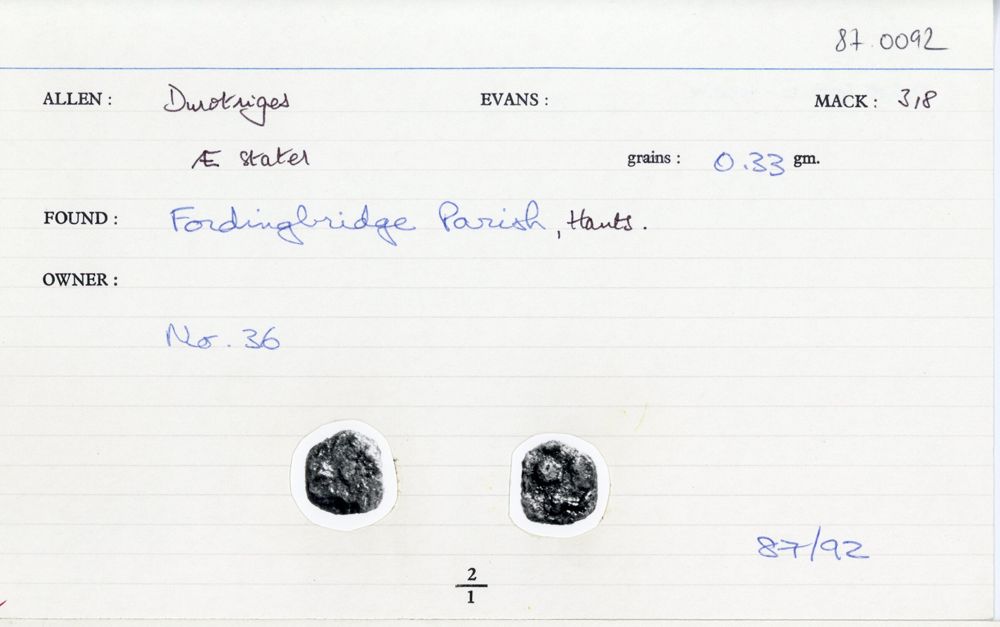 87.0092
ALLEN : Durotriges EVANS : MACK : 318
Æ stater grains : 0.33 gm.
FOUND : Fordingbridge Parish, Hants.
OWNER :
No. 36
87/92
2
1